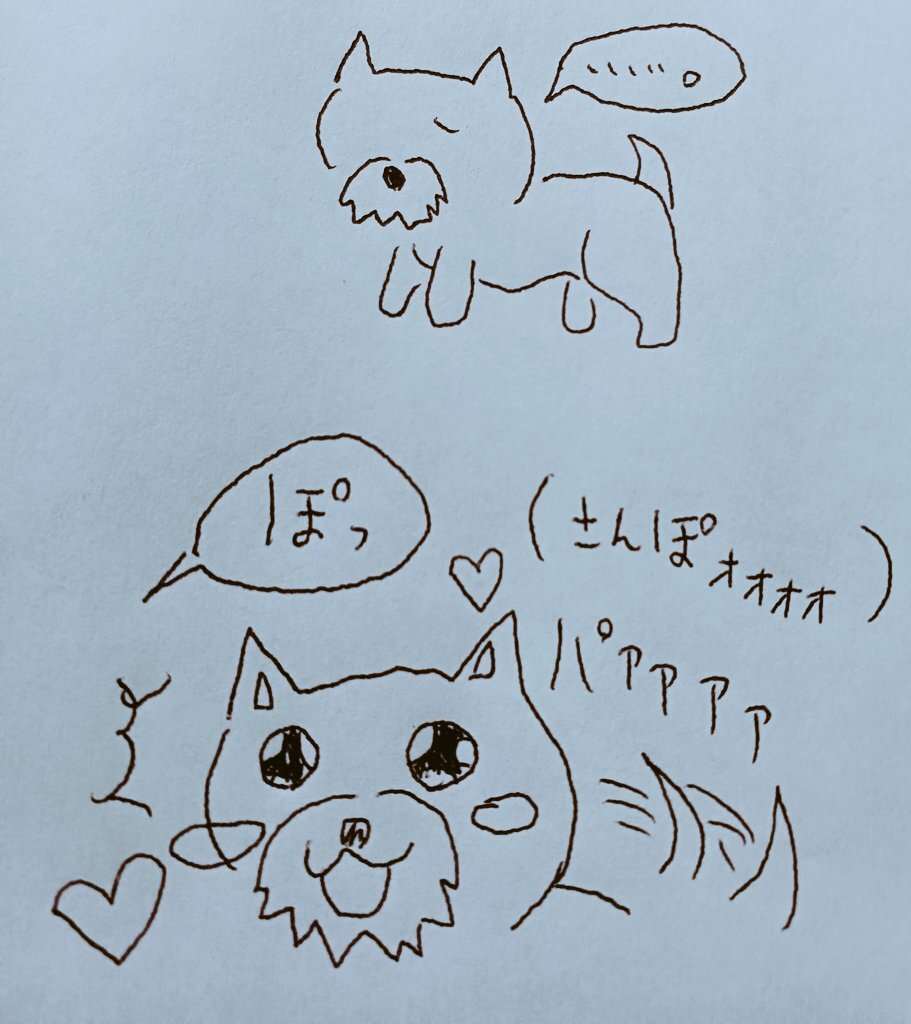 …… 。
ぽっ
(さんぽォォォォ)
パァァァァ